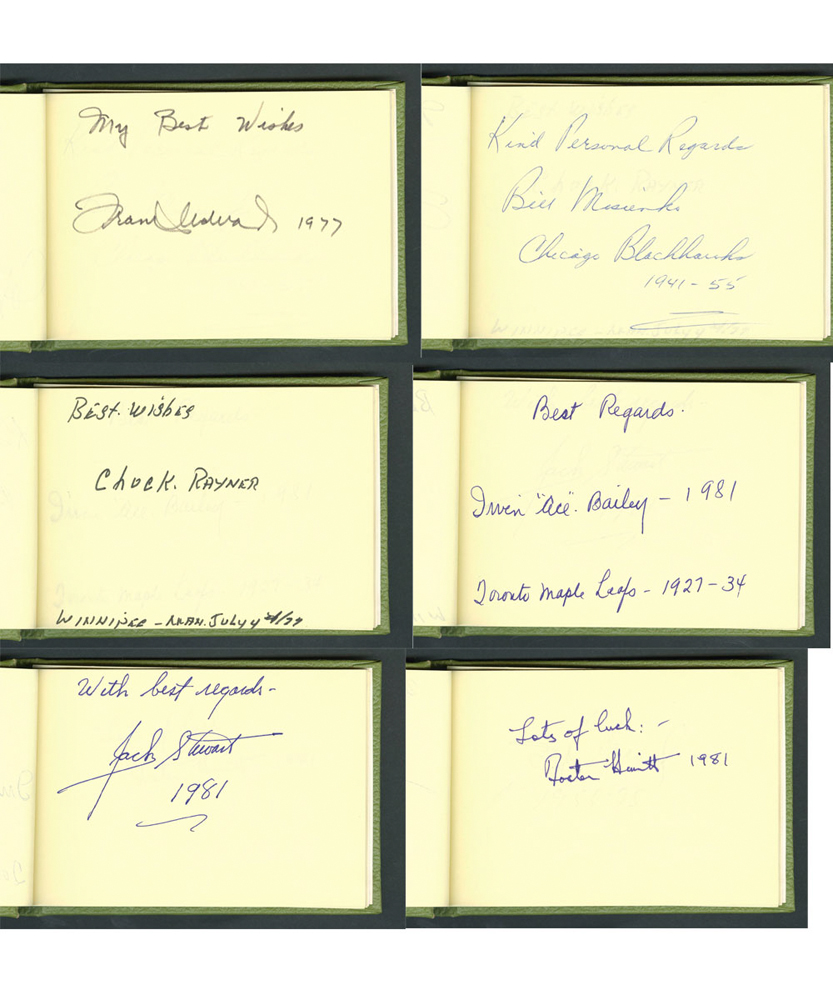 My Best Wishes
Frank Udvari 1977
Kind Personal Regards
Bill Mosienko
Chicago Blackhawks
1941-55
Best. Wishes
Chuck. Rayner
Winnipeg - Man. July 4
Best Regards.
Irvin "Ace". Bailey - 1981
Toronto Maple Leafs - 1927-34
With best regards-
Jack Stewart
1981
Lots of luck: -
Foster Hewitt 1981